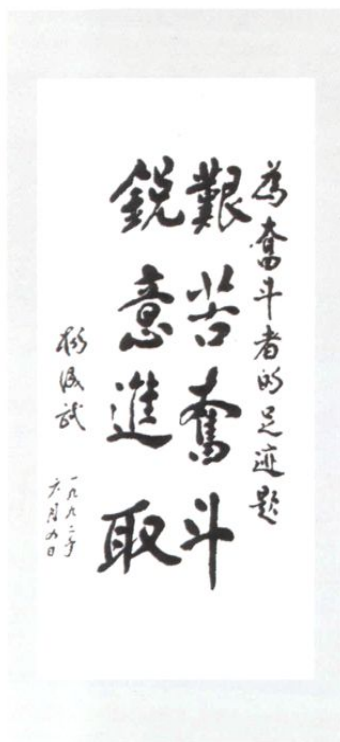 為奮斗者的足迹题
艱苦奮斗
銳意進取
楊成武
一九九二年
六月九日